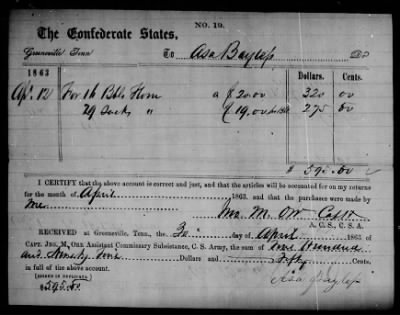 NO. 19.
The Confederate States,
Greeneville Tenn To Asa Bayless Dr
1863 Dollars. Cents.
Apl. 12 For 16 Bbls Flour a $20.00 320 00
29 Sacks " 275 00
$ 595.00
I CERTIFY that the above account is correct and just, and that the articles will be accounted for on my returns
for the month of April 1863, and that the purchases were made by
me.
M. Orr Capt
A. C. S., C. S. A.
RECEIVED at Greeneville, Tenn., the 30 day of April 1863 of
CAPT. JNO. M. ORR Assistant Commissary Subsistance, C. S. Army, the sum of Five Hundred
and Ninety Five Dollars, Cents,
in full of the above account.
[SIGNED IN DUPLICATE]
$595.
Asa Bayless